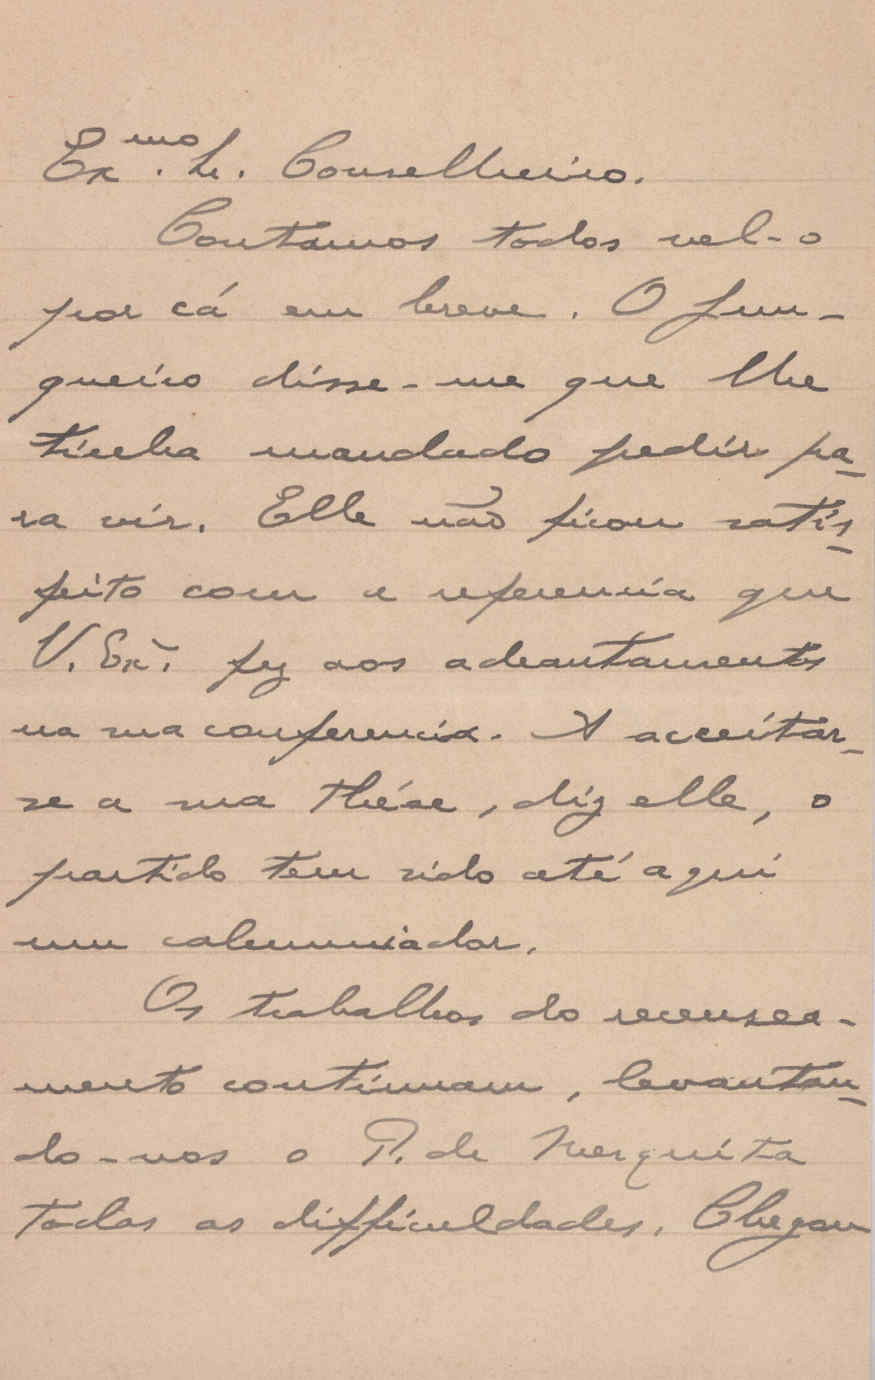 Ex.mo Sr. Conselheiro.
Contamos todos vel-o
por cá em breve. O Jun-
queiro disse-me que lhe
tinha mandado pedir pa-
ra vir. Elle não ficou satis-
feito com a referencia que
V. Exª. fez aos adeantamentos
na sua conferencia. A acceitar-
se a sua thése, diz elle, o
partido tem sido até aqui
um calumniador.
Os trabalhos do recensea-
mento continuam, levantan-
do-nos o P. de Mesquita
todas as difficuldades. Chegou